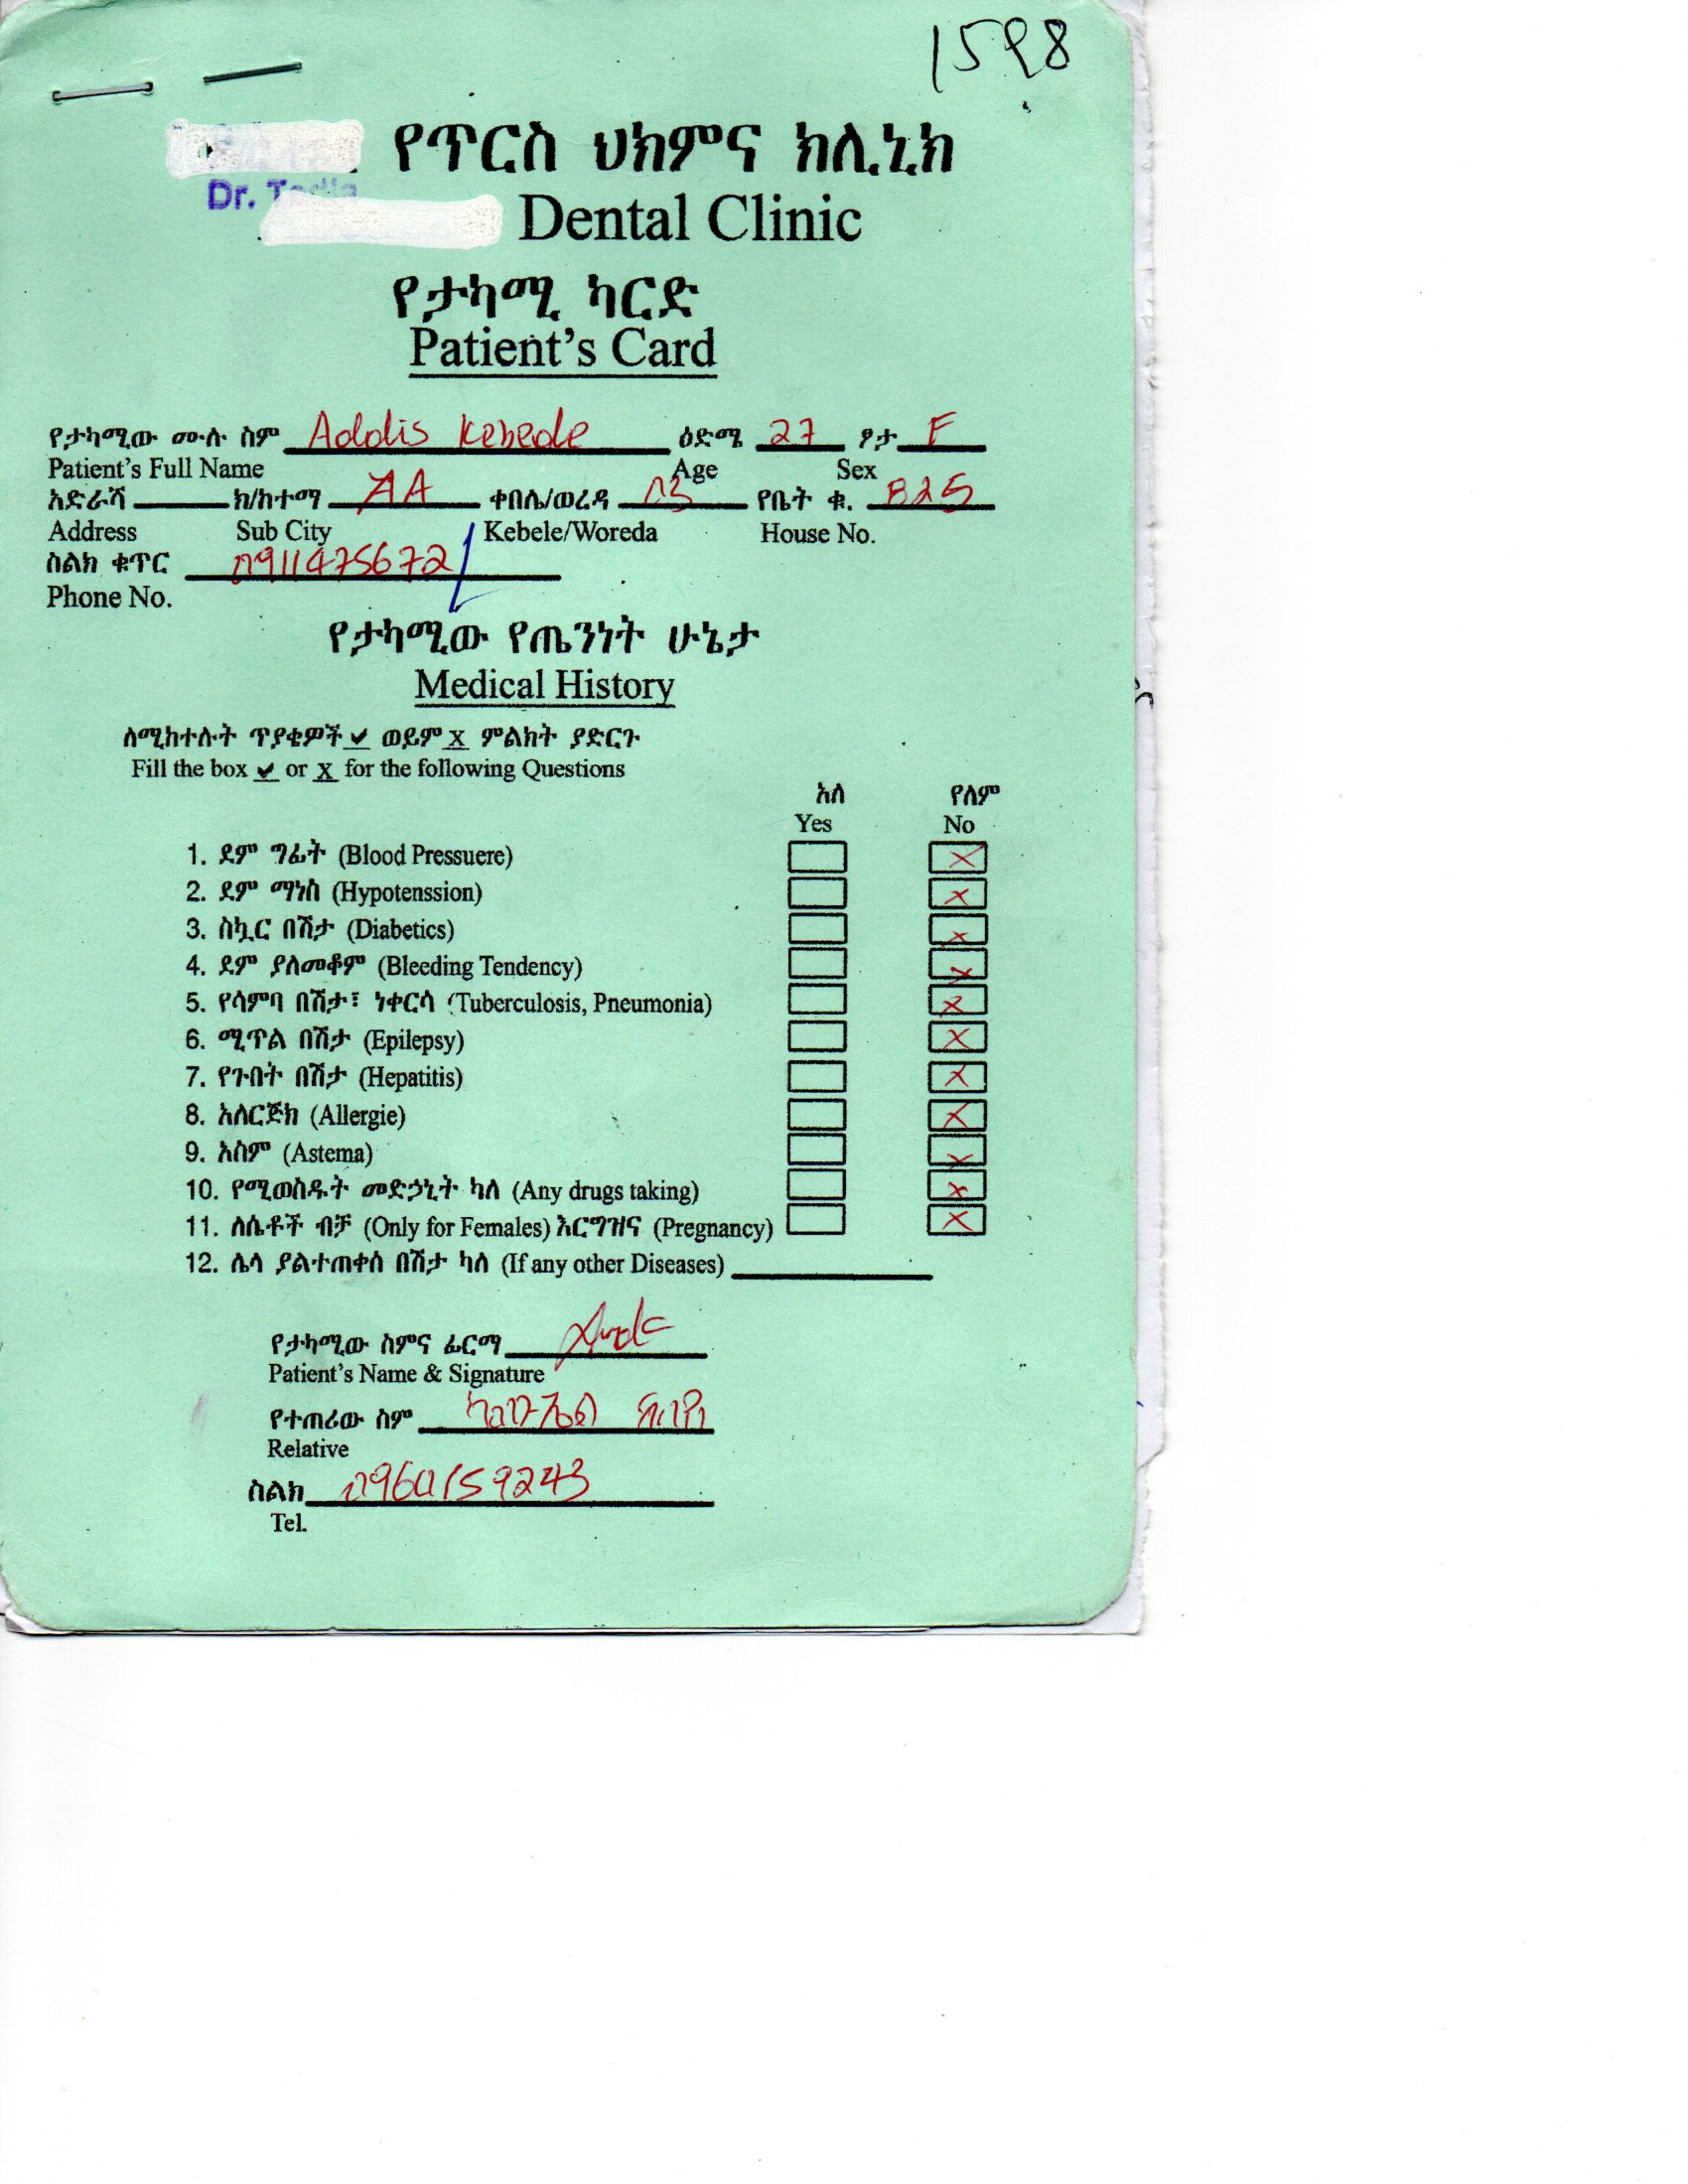 1598
የጥርስ ህክምና ክሊኒክ
Dr.
Dental Clinic
የታካሚ ካርድ
Patient's Card
የታካሚው ሙሉ ስም Addis Kebede ዕድሜ 27 ፆታ F
Patient's Full Name Age Sex
አድራሻ ክ/ከተማ AA ቀበሌ/ወረዳ 03 የቤት ቁ. B25
Address Sub City Kebele/Woreda House No.
ስልክ ቁጥር 0911475672
Phone No.
የታካሚው የጤንነት ሁኔታ
Medical History
ለሚከተሉት ጥያቄዎች ✔ ወይም X ምልክት ያድርጉ
Fill the box ✔ or X for the following Questions
አለ የለም
Yes No
1. ደም ግፊት (Blood Pressuere) X
2. ደም ማነስ (Hypotenssion) X
3. ስኳር በሽታ (Diabetics) X
4. ደም ያለመቆም (Bleeding Tendency) X
5. የሳምባ በሽታ፣ ነቀርሳ (Tuberculosis, Pneumonia) X
6. ሚጥል በሽታ (Epilepsy) X
7. የጉበት በሽታ (Hepatitis) X
8. አለርጅክ (Allergie) X
9. አስም (Astema) X
10. የሚወስዱት መድኃኒት ካለ (Any drugs taking) X
11. ለሴቶች ብቻ (Only for Females) እርግዝና (Pregnancy) X
12. ሌላ ያልተጠቀሰ በሽታ ካለ (If any other Diseases)
የታካሚው ስምና ፊርማ
Patient's Name & Signature
የተጠሪው ስም
Relative
ስልክ 0960159243
Tel.